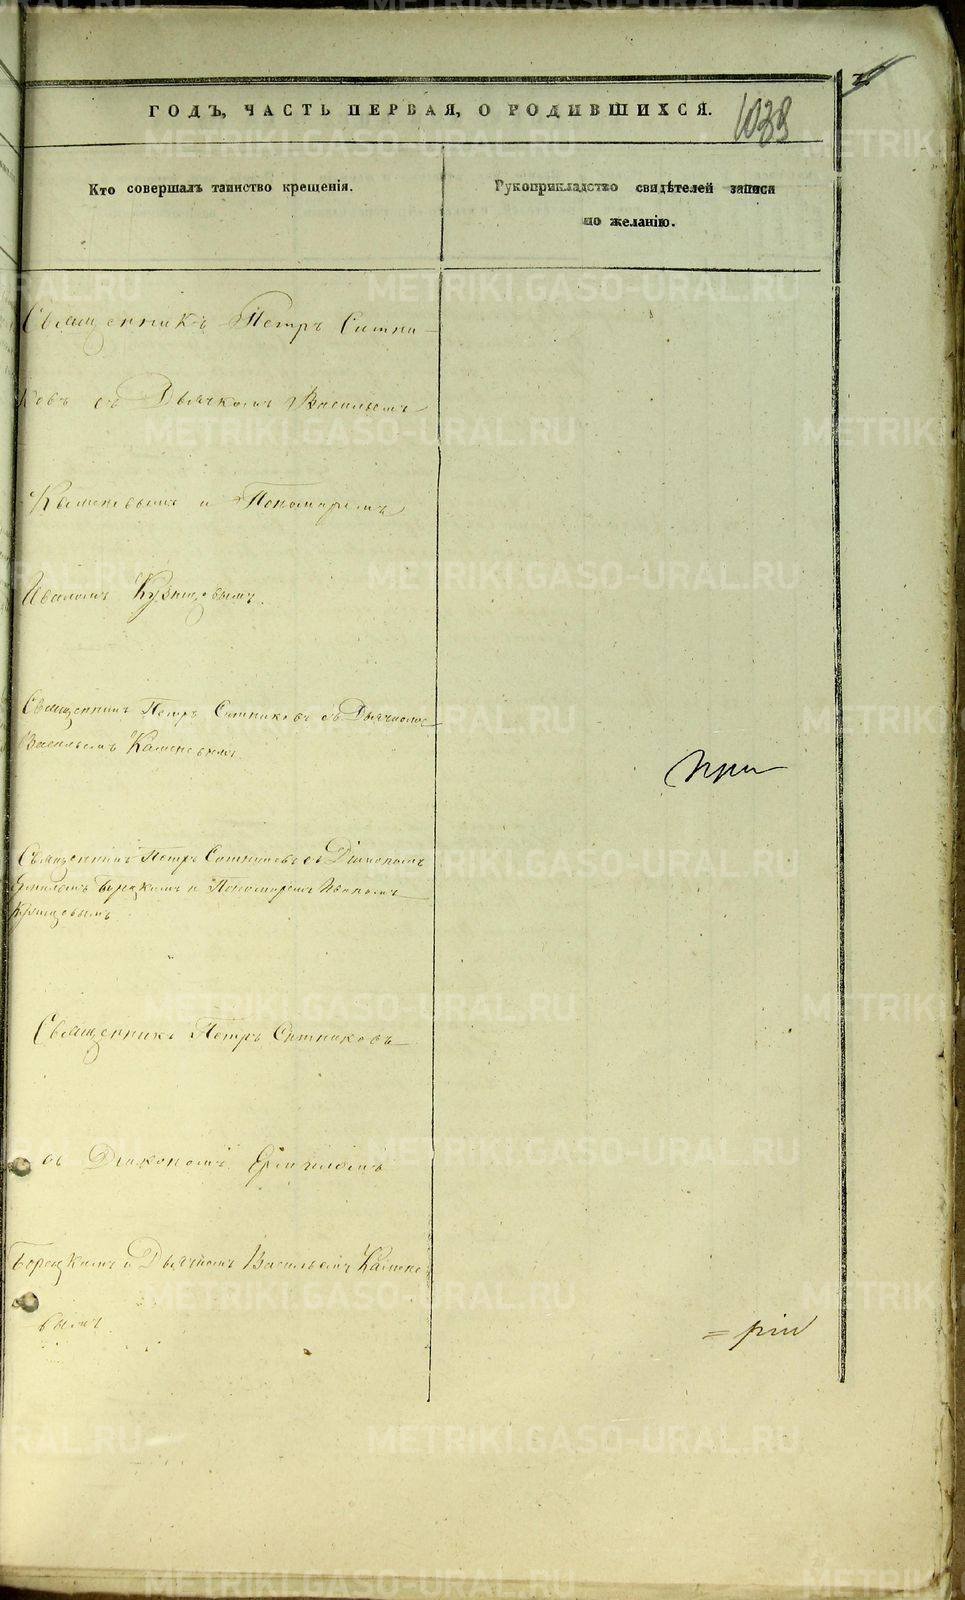 ГОДЪ, ЧАСТЬ ПЕРВАЯ, О РОДИВШИХСЯ.
1038
Кто совершалъ таинство крещенія.
Рукоприкладство свидѣтелей записи
по желанію.
Священникъ Петръ Ситни-
ковъ съ Дьячкомъ Васильемъ
Каменевымъ и Пономаремъ
Иваномъ Кузнецовымъ.
Священникъ Петръ Ситниковъ съ Дьячкомъ
Васильемъ Каменевымъ.
при
Священникъ Петръ Ситниковъ съ Діакономъ
Ермиломъ Борецкимъ и Пономаремъ Иваномъ
Кузнецовымъ.
Священникъ Петръ Ситниковъ
съ Діакономъ Ермиломъ
Борецкимъ и Дьячкомъ Васильемъ Камене-
вымъ.
METRIKI.GASO-URAL.RU